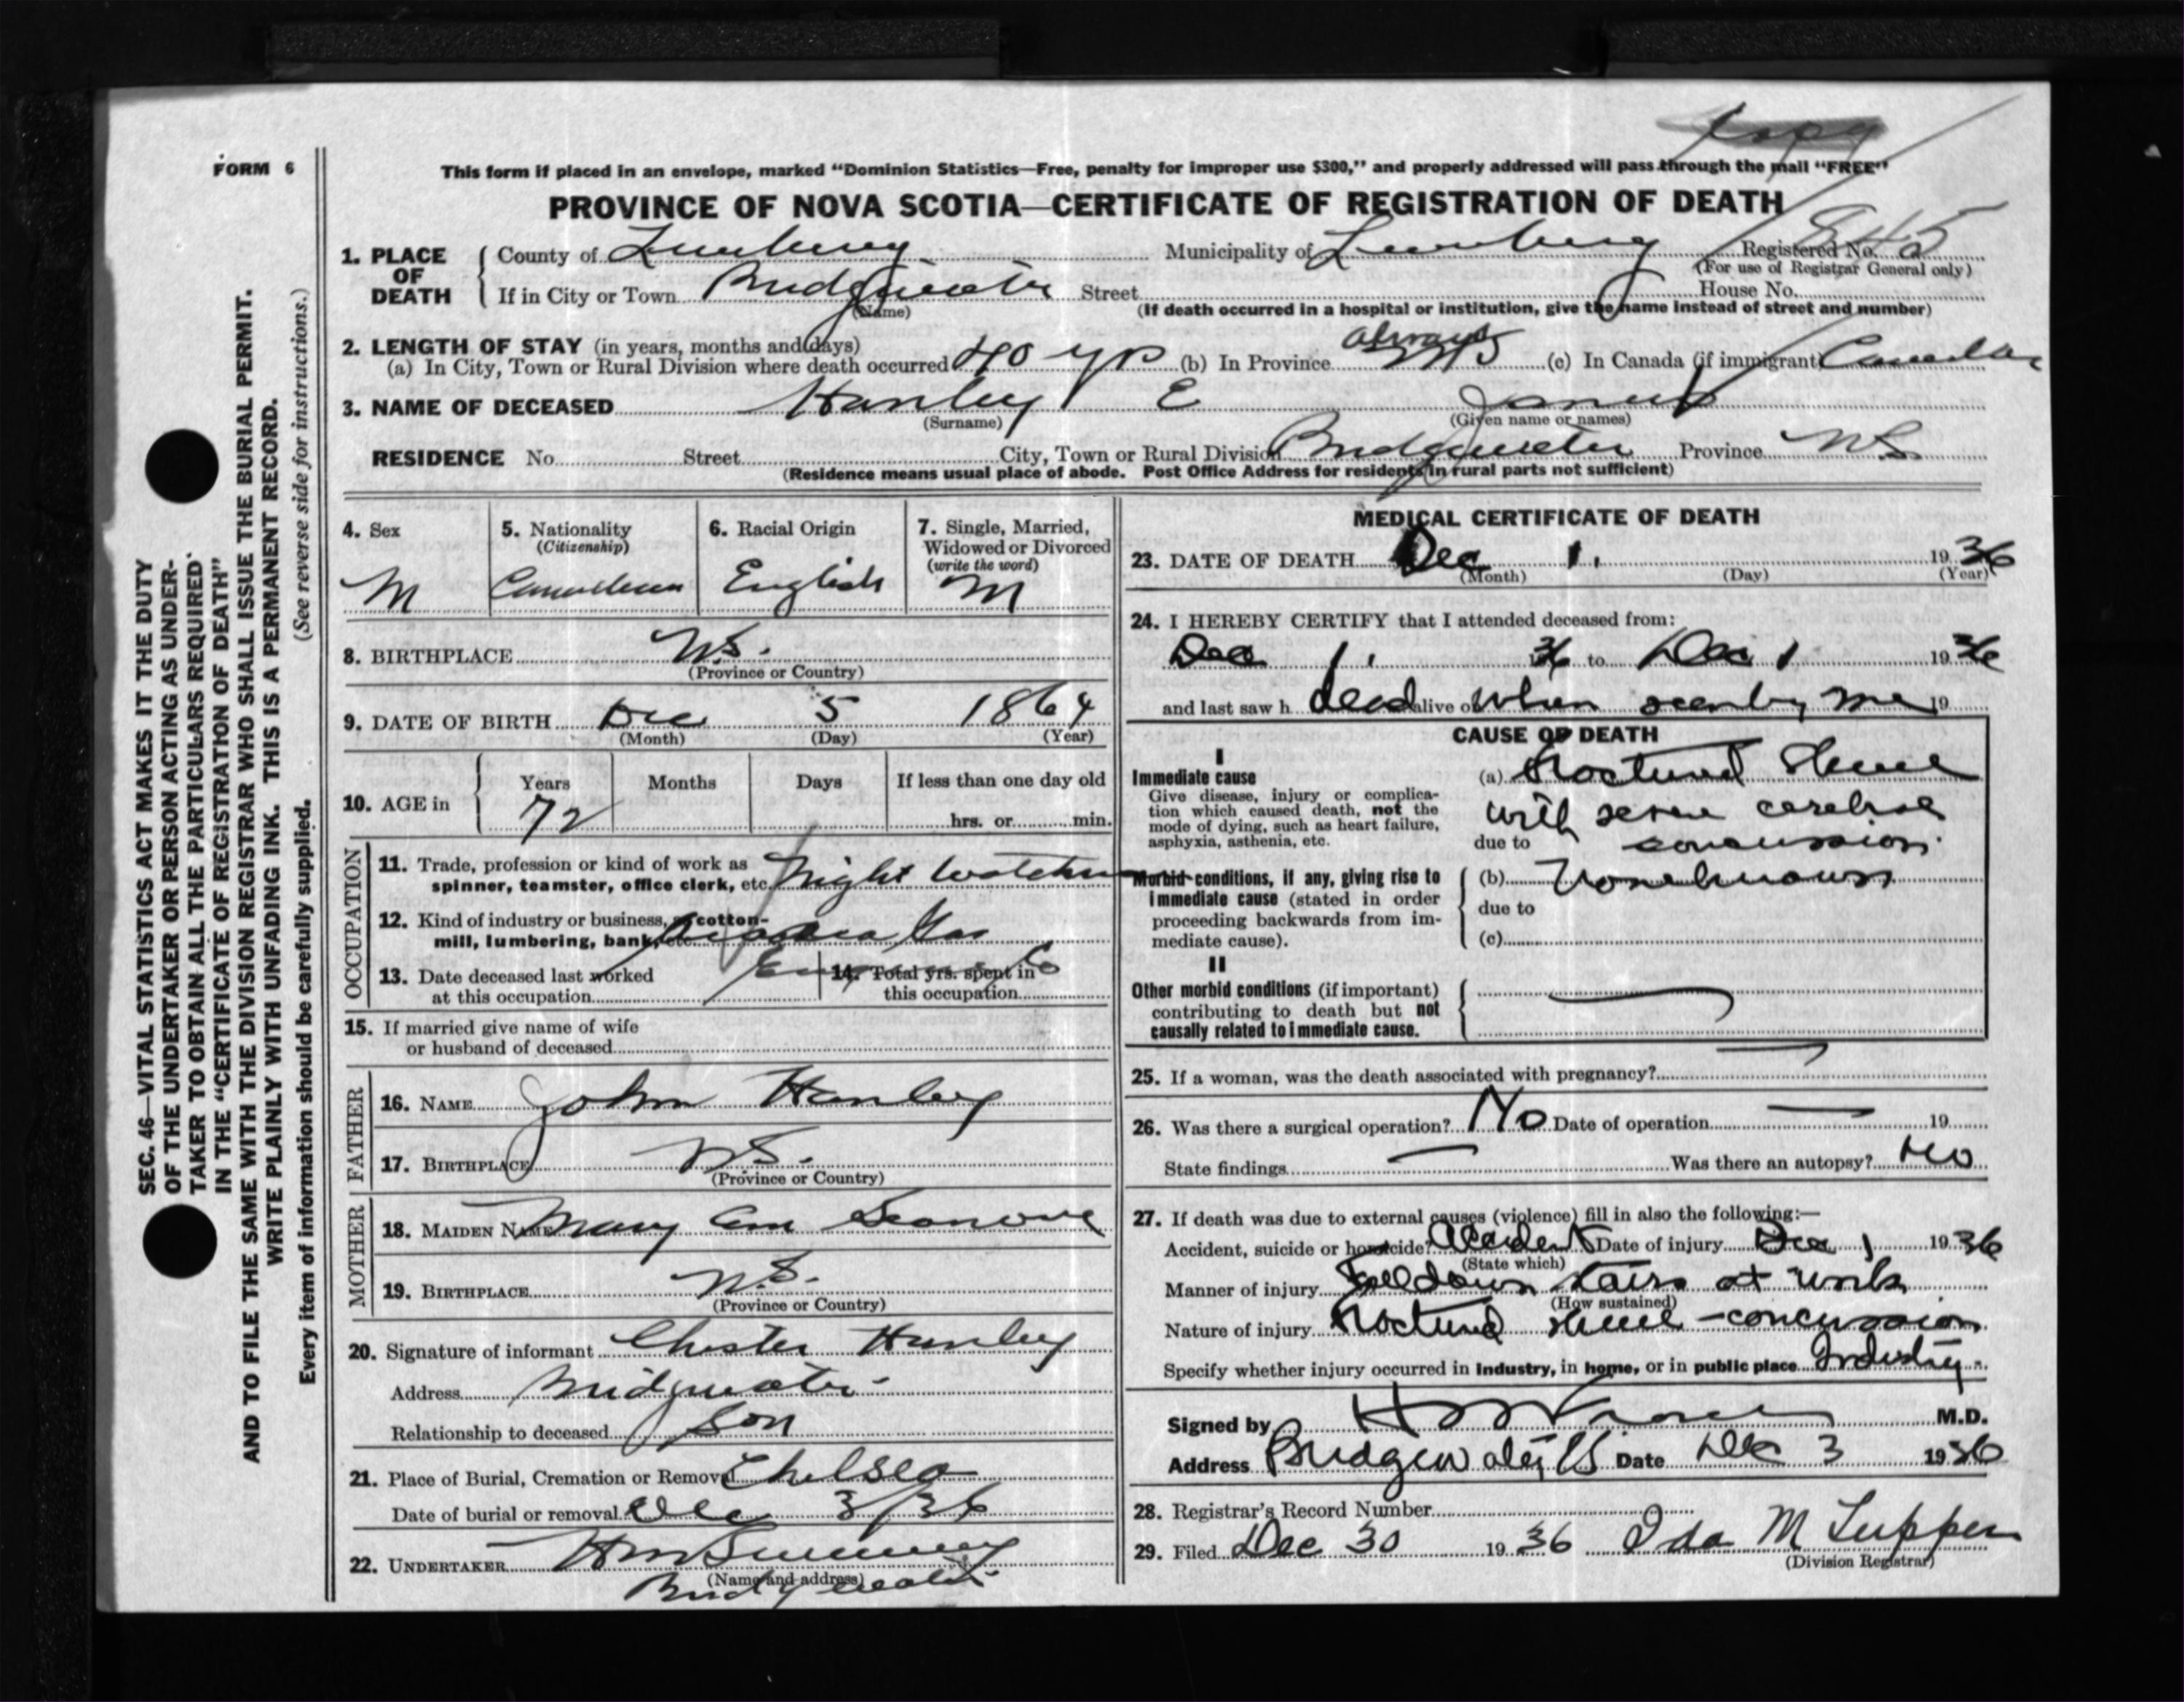 copy
FORM 6
This form if placed in an envelope, marked "Dominion Statistics—Free, penalty for improper use $300," and properly addressed will pass through the mail "FREE"
PROVINCE OF NOVA SCOTIA—CERTIFICATE OF REGISTRATION OF DEATH
1. PLACE OF DEATH County of Lunenburg Municipality of Lunenburg Registered No. 845
(For use of Registrar General only)
If in City or Town Bridgewater Street House No.
(Name) (If death occurred in a hospital or institution, give the name instead of street and number)
2. LENGTH OF STAY (in years, months and days)
(a) In City, Town or Rural Division where death occurred 40 yrs (b) In Province always (c) In Canada (if immigrant) Canada
3. NAME OF DECEASED Hanley E James
(Surname) (Given name or names)
RESIDENCE No. Street City, Town or Rural Division Bridgewater Province NS
(Residence means usual place of abode. Post Office Address for residents in rural parts not sufficient)
4. Sex M
5. Nationality (Citizenship) Canadian
6. Racial Origin English
7. Single, Married, Widowed or Divorced (write the word) M
8. BIRTHPLACE N.S.
(Province or Country)
9. DATE OF BIRTH Dec 5 1864
(Month) (Day) (Year)
10. AGE in Years 72 Months Days If less than one day old hrs. or min.
OCCUPATION
11. Trade, profession or kind of work as
spinner, teamster, office clerk, etc. Night Watchman
12. Kind of industry or business, as cotton-
mill, lumbering, bank, etc. Acadia Gas
Engine Co
13. Date deceased last worked
at this occupation
14. Total yrs. spent in
this occupation
15. If married give name of wife
or husband of deceased
FATHER
16. NAME John Hanley
17. BIRTHPLACE N.S.
(Province or Country)
MOTHER
18. MAIDEN NAME Mary Ann
19. BIRTHPLACE N.S.
(Province or Country)
20. Signature of informant Chester Hanley
Address Bridgewater
Relationship to deceased Son
21. Place of Burial, Cremation or Removal Chelsea
Date of burial or removal Dec 3/36
22. UNDERTAKER
(Name and address)
Bridgewater
MEDICAL CERTIFICATE OF DEATH
23. DATE OF DEATH Dec 1. 1936
(Month) (Day) (Year)
24. I HEREBY CERTIFY that I attended deceased from:
Dec 1. 36 to Dec 1 1936
and last saw h dead alive on when seen by me 19
CAUSE OF DEATH
I
Immediate cause
Give disease, injury or complica-
tion which caused death, not the
mode of dying, such as heart failure,
asphyxia, asthenia, etc.
(a) Fractured Skull
with severe cerebral
due to concussion.
Morbid conditions, if any, giving rise to
immediate cause (stated in order
proceeding backwards from im-
mediate cause).
(b) None known
due to
(c)
II
Other morbid conditions (if important)
contributing to death but not
causally related to immediate cause.
25. If a woman, was the death associated with pregnancy?
26. Was there a surgical operation? No Date of operation 19
State findings Was there an autopsy? No
27. If death was due to external causes (violence) fill in also the following:—
Accident, suicide or homicide? Accident Date of injury Dec 1 1936
(State which)
Manner of injury Fell down stairs at work
(How sustained)
Nature of injury Fractured skull - concussion
Specify whether injury occurred in industry, in home, or in public place Industry.
Signed by M.D.
Address Bridgewater, NS Date Dec 3 1936
28. Registrar's Record Number
29. Filed Dec 30 1936 Ida M Tupper
(Division Registrar)
SEC. 46—VITAL STATISTICS ACT MAKES IT THE DUTY
OF THE UNDERTAKER OR PERSON ACTING AS UNDER-
TAKER TO OBTAIN ALL THE PARTICULARS REQUIRED
IN THE "CERTIFICATE OF REGISTRATION OF DEATH"
AND TO FILE THE SAME WITH THE DIVISION REGISTRAR WHO SHALL ISSUE THE BURIAL PERMIT.
WRITE PLAINLY WITH UNFADING INK. THIS IS A PERMANENT RECORD.
Every item of information should be carefully supplied. (See reverse side for instructions.)